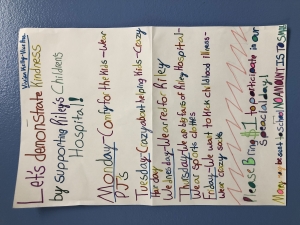 Let's demonstrate Kindness
by supporting Riley's Children's
Hospital!!
Monday- Comfy for the Kids-Wear
PJ's
Tuesday-Crazy about helping Kids-Crazy
Hair day
Wednesday-Wear red for Riley
Thursday-We are big fans of Riley Hospital-
Wear sports clothes
Friday-We want to kick childhood illness-
wear crazy socks
Please Bring $1 to participate in our
special day!
Money may be sent to school NO AMOUNT IS TO SMALL